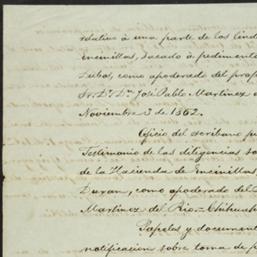 relativo á una parte de los lind
encinillas, sacado á pedimento
Zubos, como apoderado del prop
Sr. Dr. Dn. José Pablo Martinez d
Noviembre 3 de 1862.
Oficio del escribano pu
Testimonio de las diligencias so
de la Hacienda de encinillas
Duran, como apoderado del
Martinez del Rio - Chihuah
Papeles y document
notificacion sobre toma de p